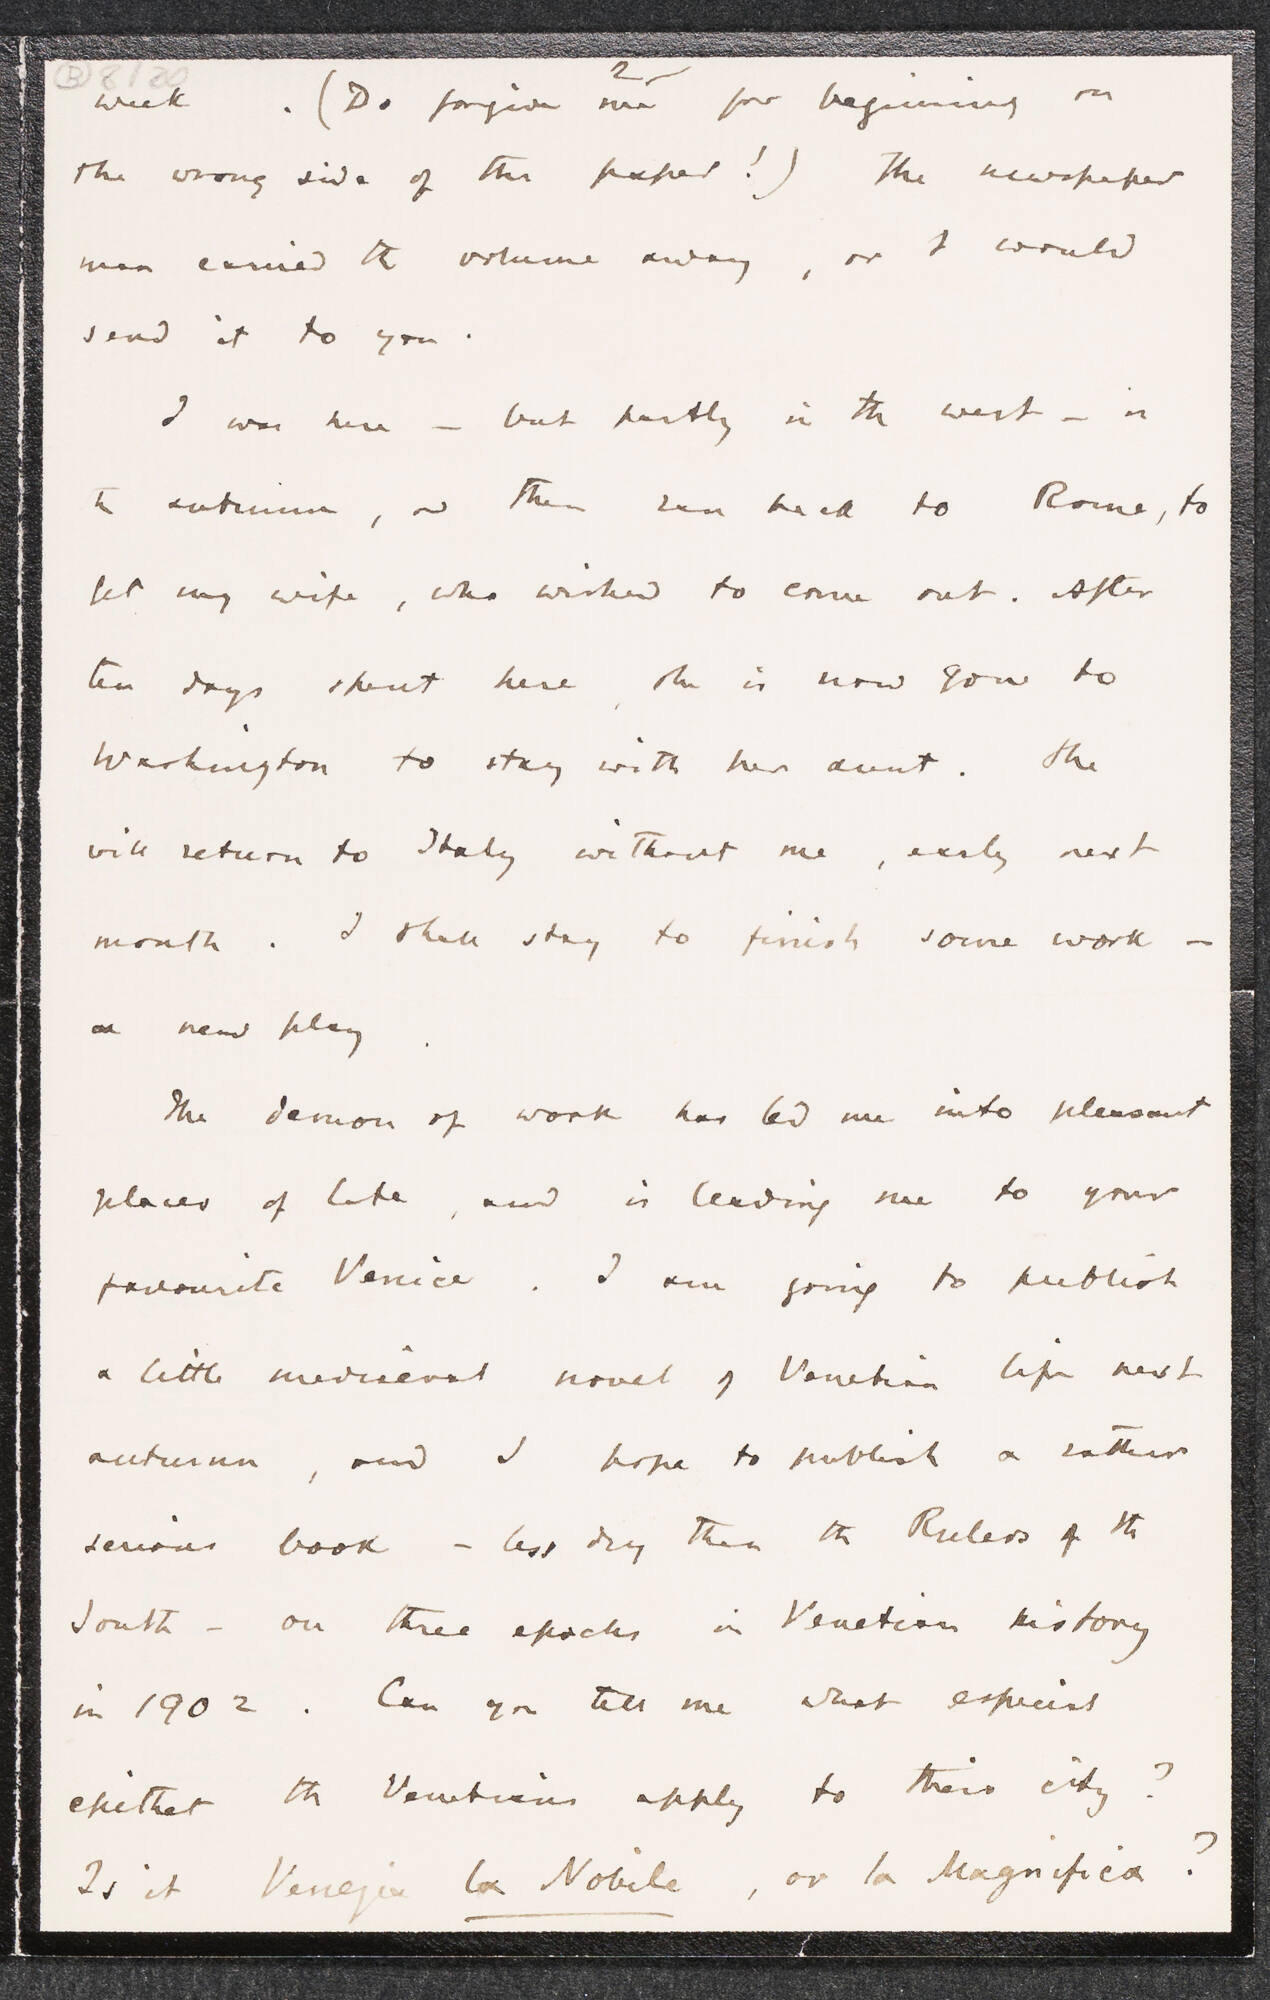 2
week . (Do forgive me for beginning on
the wrong side of the paper!) The newspaper
man carried the volume away, or I would
send it to you.
I was here – but partly in the west – in
the autumn, and then ran back to Rome, to
get my wife, who wished to come out. After
ten days spent here, she is now gone to
Washington to stay with her aunt. She
will return to Italy without me, early next
month. I shall stay to finish some work –
a new play.
The demon of work has led me into pleasant
places of late, and is leading me to your
favourite Venice. I am going to publish
a little mediaeval novel of Venetian life next
autumn, and I hope to publish a rather
serious book – less dry than the Rulers of the
South – on three epochs in Venetian history
in 1902. Can you tell me what especial
epithet the Venetians apply to their city?
Is it Venezia la Nobile, or la Magnifica?